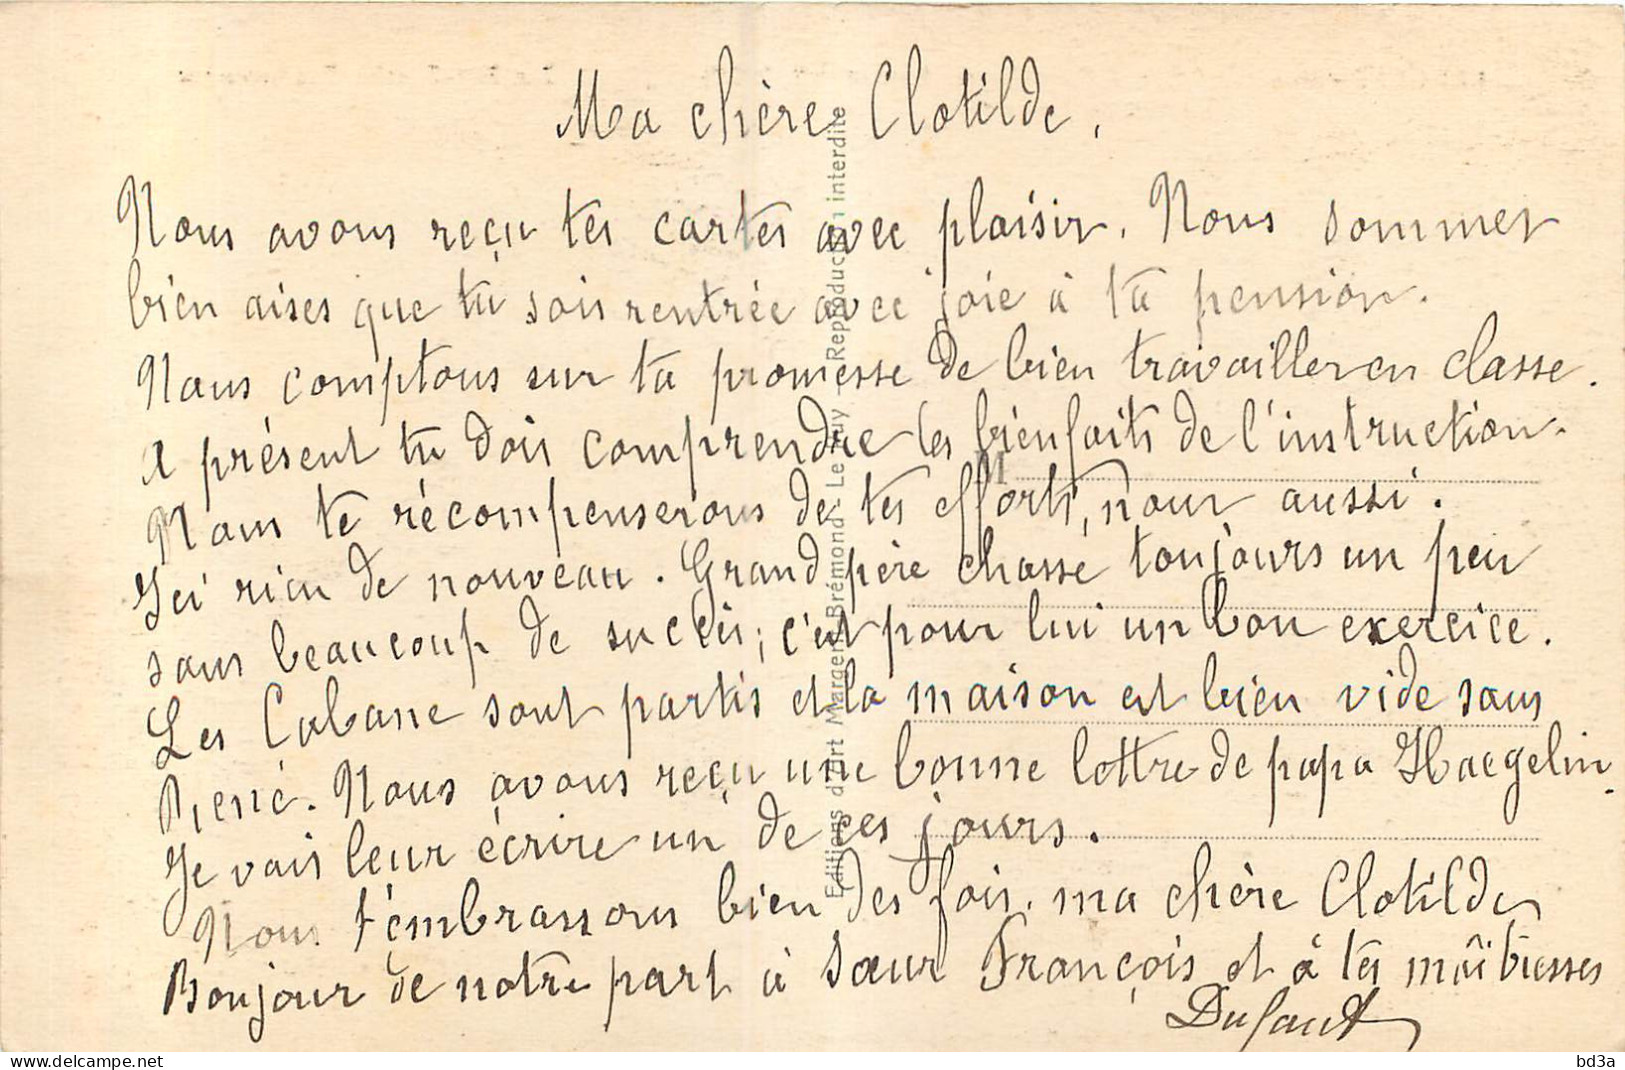 Ma chère Clotilde,
Nous avons reçu tes cartes avec plaisir. Nous sommes
bien aises que tu sois rentrée avec joie à ta pension.
Nous comptons sur ta promesse de bien travailler en classe.
A présent tu dois comprendre les bienfaits de l'instruction.
Nous te récompenserons de tes efforts, nous aussi.
Ici rien de nouveau. Grand père chasse toujours un peu
sans beaucoup de succès; c'est pour lui un bon exercice.
Les Cabane sont partis et la maison est bien vide sans
René. Nous avons reçu une bonne lettre de papa Haegelin.
Je vais leur écrire un de ces jours.
Nous t'embrassons bien des fois, ma chère Clotilde
Bonjour de notre part à Sœur François et à tes maîtresses
Dufaut
Editions d'Art Margerit-Brémond - Le Puy - Reproduction interdite
M
bd3a